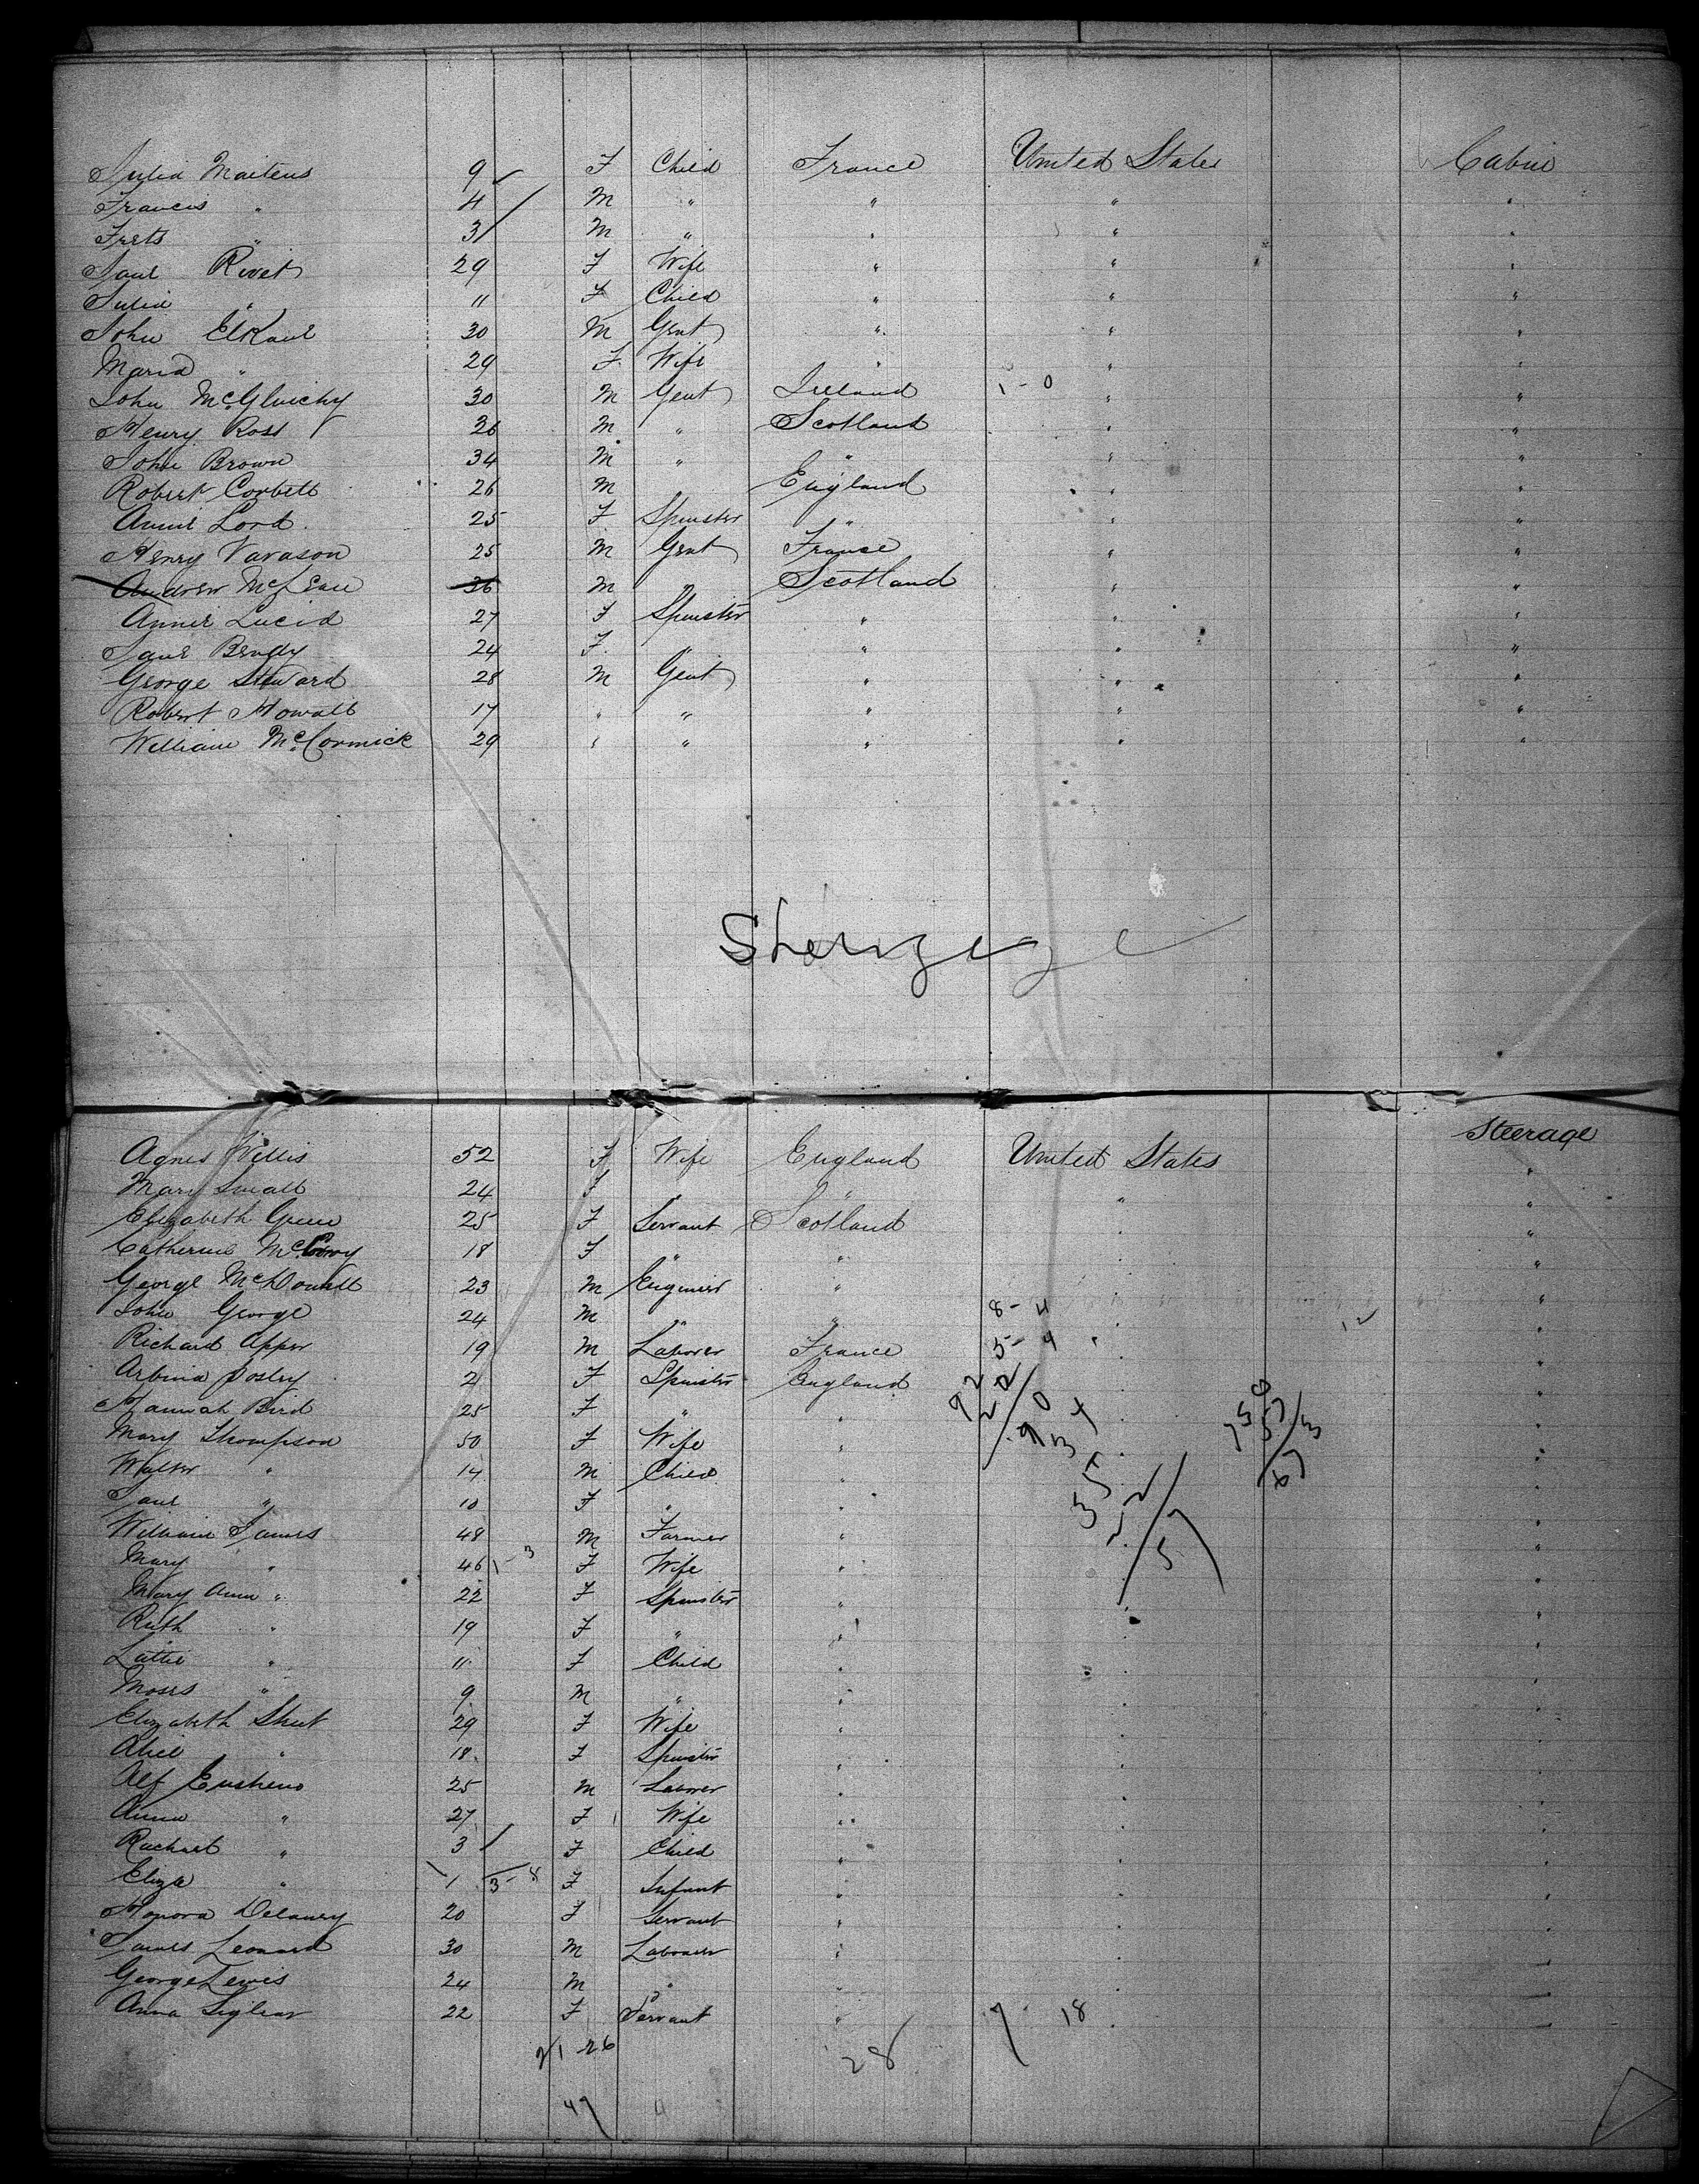 Julia Maitens 9 F Child France United States Cabin
Francis " 4 M " " " "
Frets " 3 M " " " "
Jane Rivet 29 F Wife " " "
Julia " 11 F Child " " "
John 30 M Gent " " "
Maria " 29 F Wife " " "
John 30 M Gent Ireland 1-0 " "
Henry Ross 26 M " Scotland " "
John Brown 34 M " " " "
Robert Corbett 26 M England " "
Annie Lord 25 F Spinster " " "
Henry Vavason 25 M Gent France " "
Andrew McLean 36 M " Scotland " "
Annie Lucid 27 F Spinster " " "
Jane 24 F " " " "
George Steward 28 M Gent " " "
Robert Howatt 17 " " " " "
William McCormick 29 " " " " "
Steerage
Steerage
Agnes Willis 52 F Wife England United States "
Mary Small 24 F " " " "
Elizabeth Green 25 F Servant Scotland " "
Catherine 18 F " " " "
George McDowall 23 M Engineer " " "
John George 24 M " " 8-4 " "
Richard 19 M Laborer France 5-4 " "
2 F Spinster England " "
Hannah Bird 25 F " " " "
Mary Thompson 50 F Wife " " "
Walter " 14 M Child " " "
Jane " 10 F " " " "
William James 48 M Farmer " " "
Mary " 46 1-3 F Wife " " "
Mary Ann " 22 F Spinster " " "
Ruth " 19 F " " " "
Lattie " 11 F Child " " "
Moses " 9 M " " " "
Elizabeth 29 F Wife " " "
Alice " 18 F Spinster " " "
Alf 25 M Laborer " " "
Anna " 27 F Wife " " "
Rachael " 3 F Child " " "
Eliza " 1 3-8 F Infant " " "
Honora Delaney 20 F Servant " " "
James Leonard 30 M Laborer " " "
George Lewis 24 M " " " "
Anna 22 F Servant " 7 18 " "
21-26 28
47